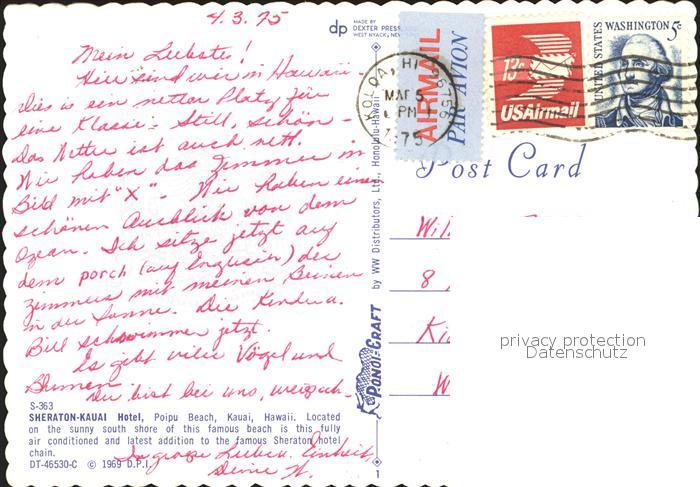 4.3.75
Mein Liebster!
Hier sind wir in Hawaii.
Dies is ein netter Platz für
eine Klasse: Still, schön -
Das Wetter ist auch nett.
Wir haben das Zimmer im
Bild mit "X". Wir haben einen
schönen Ausblick von dem
Ozean. Ich sitze jetzt auf
dem porch (auf English) des
Zimmers mit meinen Beinen
in der Sonne. Die Kinder u.
Bill schwimmen jetzt.
Es gibt viele Vögel und
Blumen
Du bist bei uns,
In grosse Liebe u. Einheit,
Deine W.
S-363
SHERATON-KAUAI Hotel, Poipu Beach, Kauai, Hawaii. Located
on the sunny south shore of this famous beach is this fully
air conditioned and latest addition to the famous Sheraton hotel
chain.
DT-46530-C © 1969 D.P.I.
dp MADE BY
DEXTER PRESS
WEST NYACK, NEW
by WW Distributors, Ltd., Honolulu-Hawaii
PONO CRAFT
1
AIRMAIL
PAR AVION
KOLOA, HI 96756
MAR 5
PM
1975
13c
USAirmail
UNITED STATES
WASHINGTON 5c
Post Card
Wil
8
Ki
privacy protection
Datenschutz